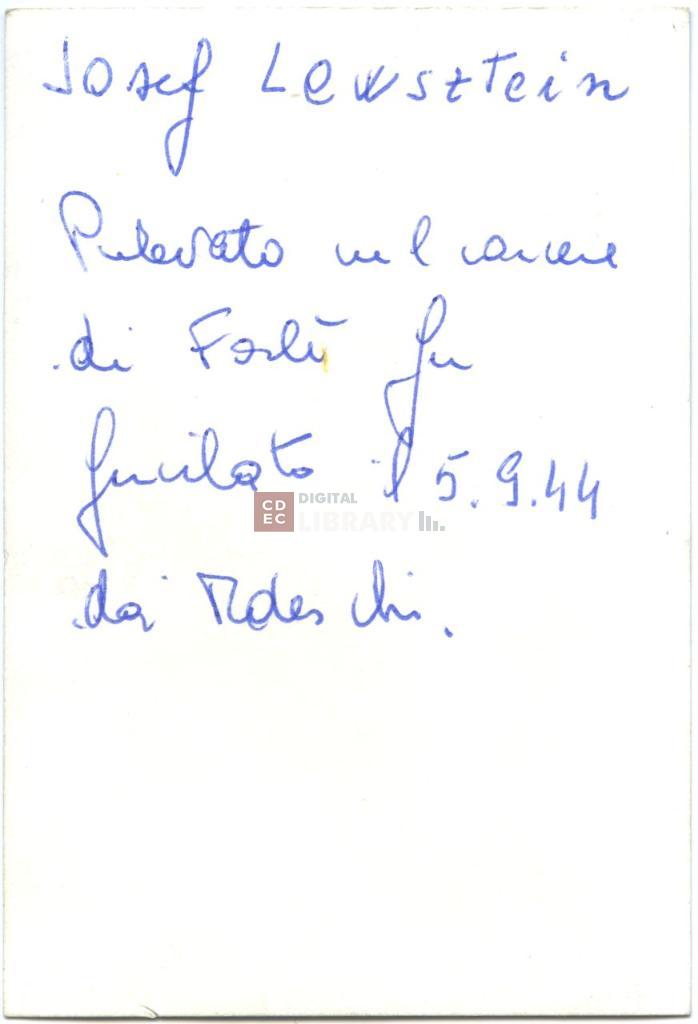 Josef Lewsztein
Prelevato nel carcere
di Forlì fu
fucilato il 5.9.44
CDEC DIGITAL LIBRARY
dai Tedeschi.